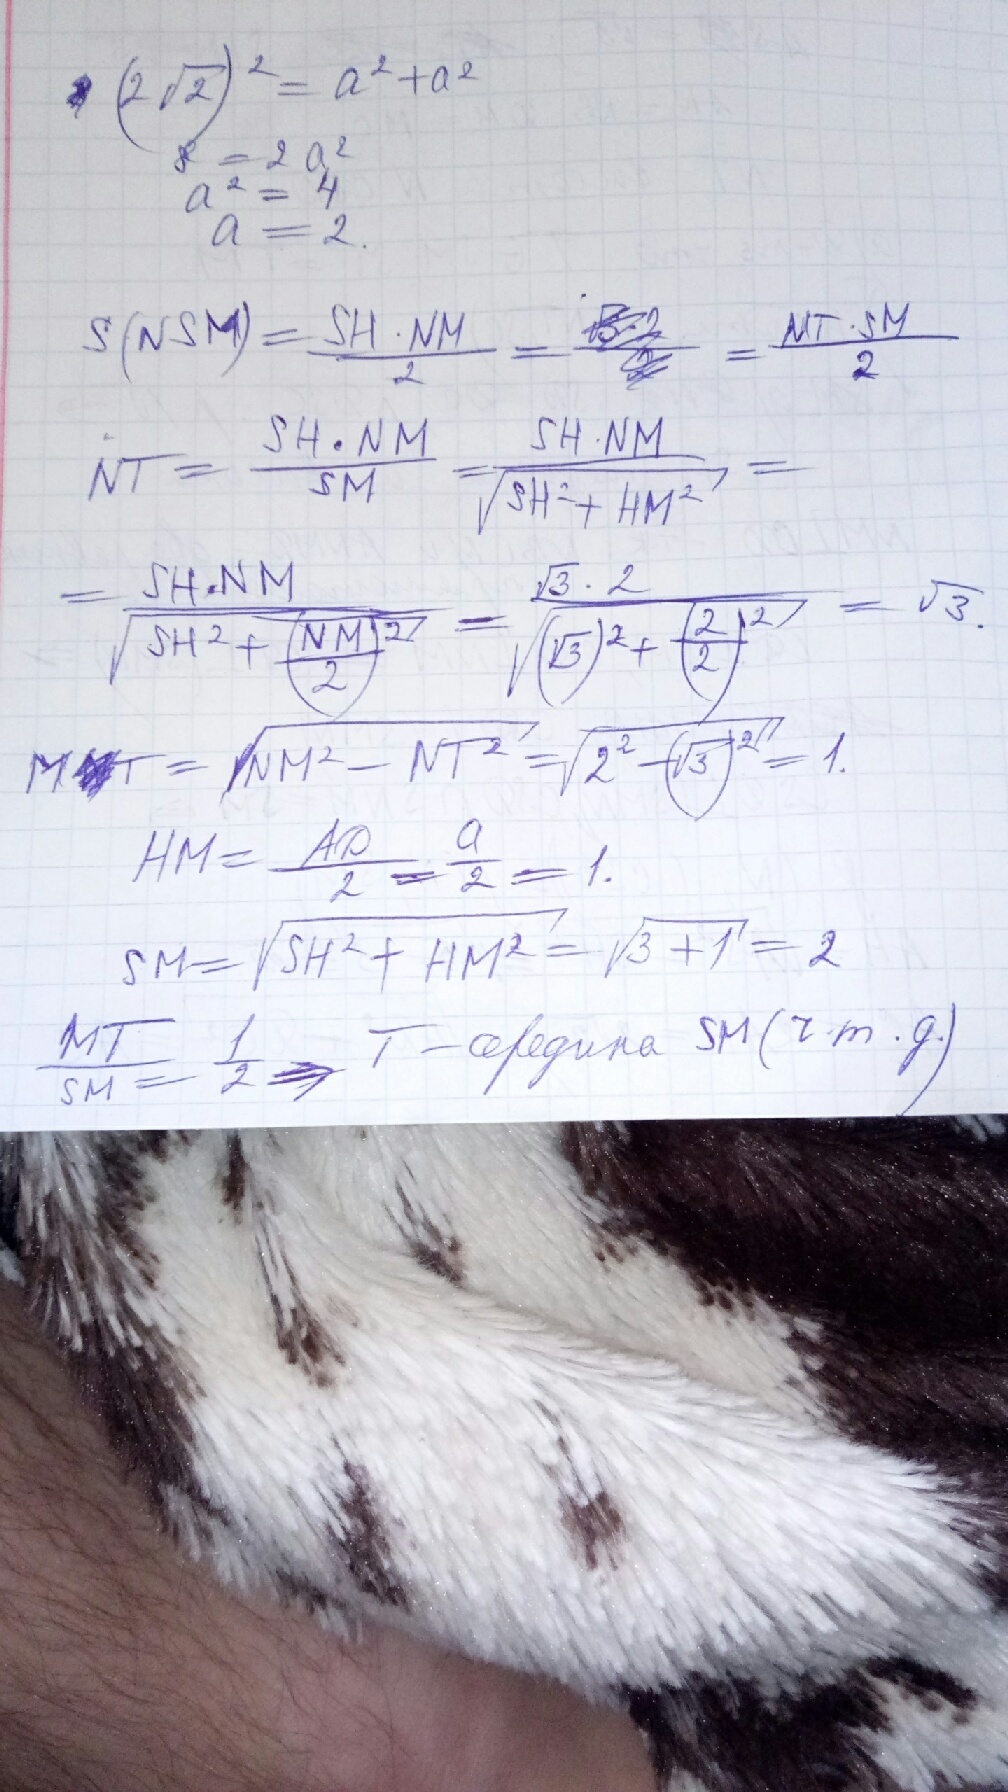 (2√2)² = a² + a²
8 = 2a²
a² = 4
a = 2.
S(NSM) = SH · NM / 2 = = NT · SM / 2
NT = SH · NM / SM = SH · NM / √(SH² + HM²) =
= SH · NM / √(SH² + (NM/2)²) = √3 · 2 / √((√3)² + (2/2)²) = √3.
MT = √(NM² − NT²) = √(2² − (√3)²) = 1.
HM = AD/2 = a/2 = 1.
SM = √(SH² + HM²) = √(3 + 1) = 2
MT/SM = 1/2 ⇒ T – середина SM (ч.т.д.)